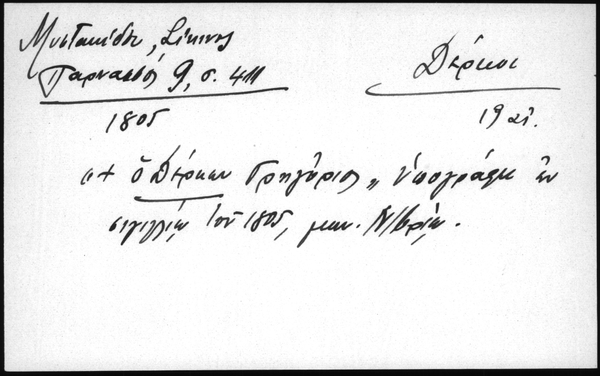 Μυστακίδου, Σίκινος
Παρνασσός 9, σ. 411
Δέρκοι
1805
19 αἰ.
«+ ὁ Δέρκων Γρηγόριος» ὑπογράφει ἐν
σιγιλλίῳ τοῦ 1805, μην. Ν/βρίῳ.